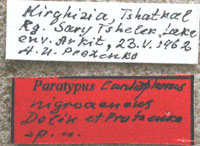 Kirghizia, Tshatkal
Rg. Sary Tshelek Lake
env. Arkit, 23.V.1962
A.U. Protzenko
Paratypus Cardiophorus
Dolin et Protzenko
sp. n.